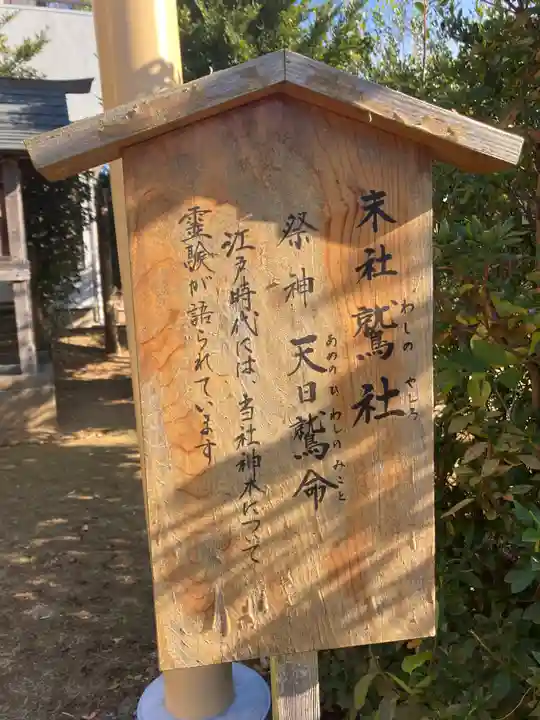 末社 鷲社
わしの やしろ
祭神 天日鷲命
あめの ひ わしの みこと
江戸時代には、当社神木について
霊験が語られています